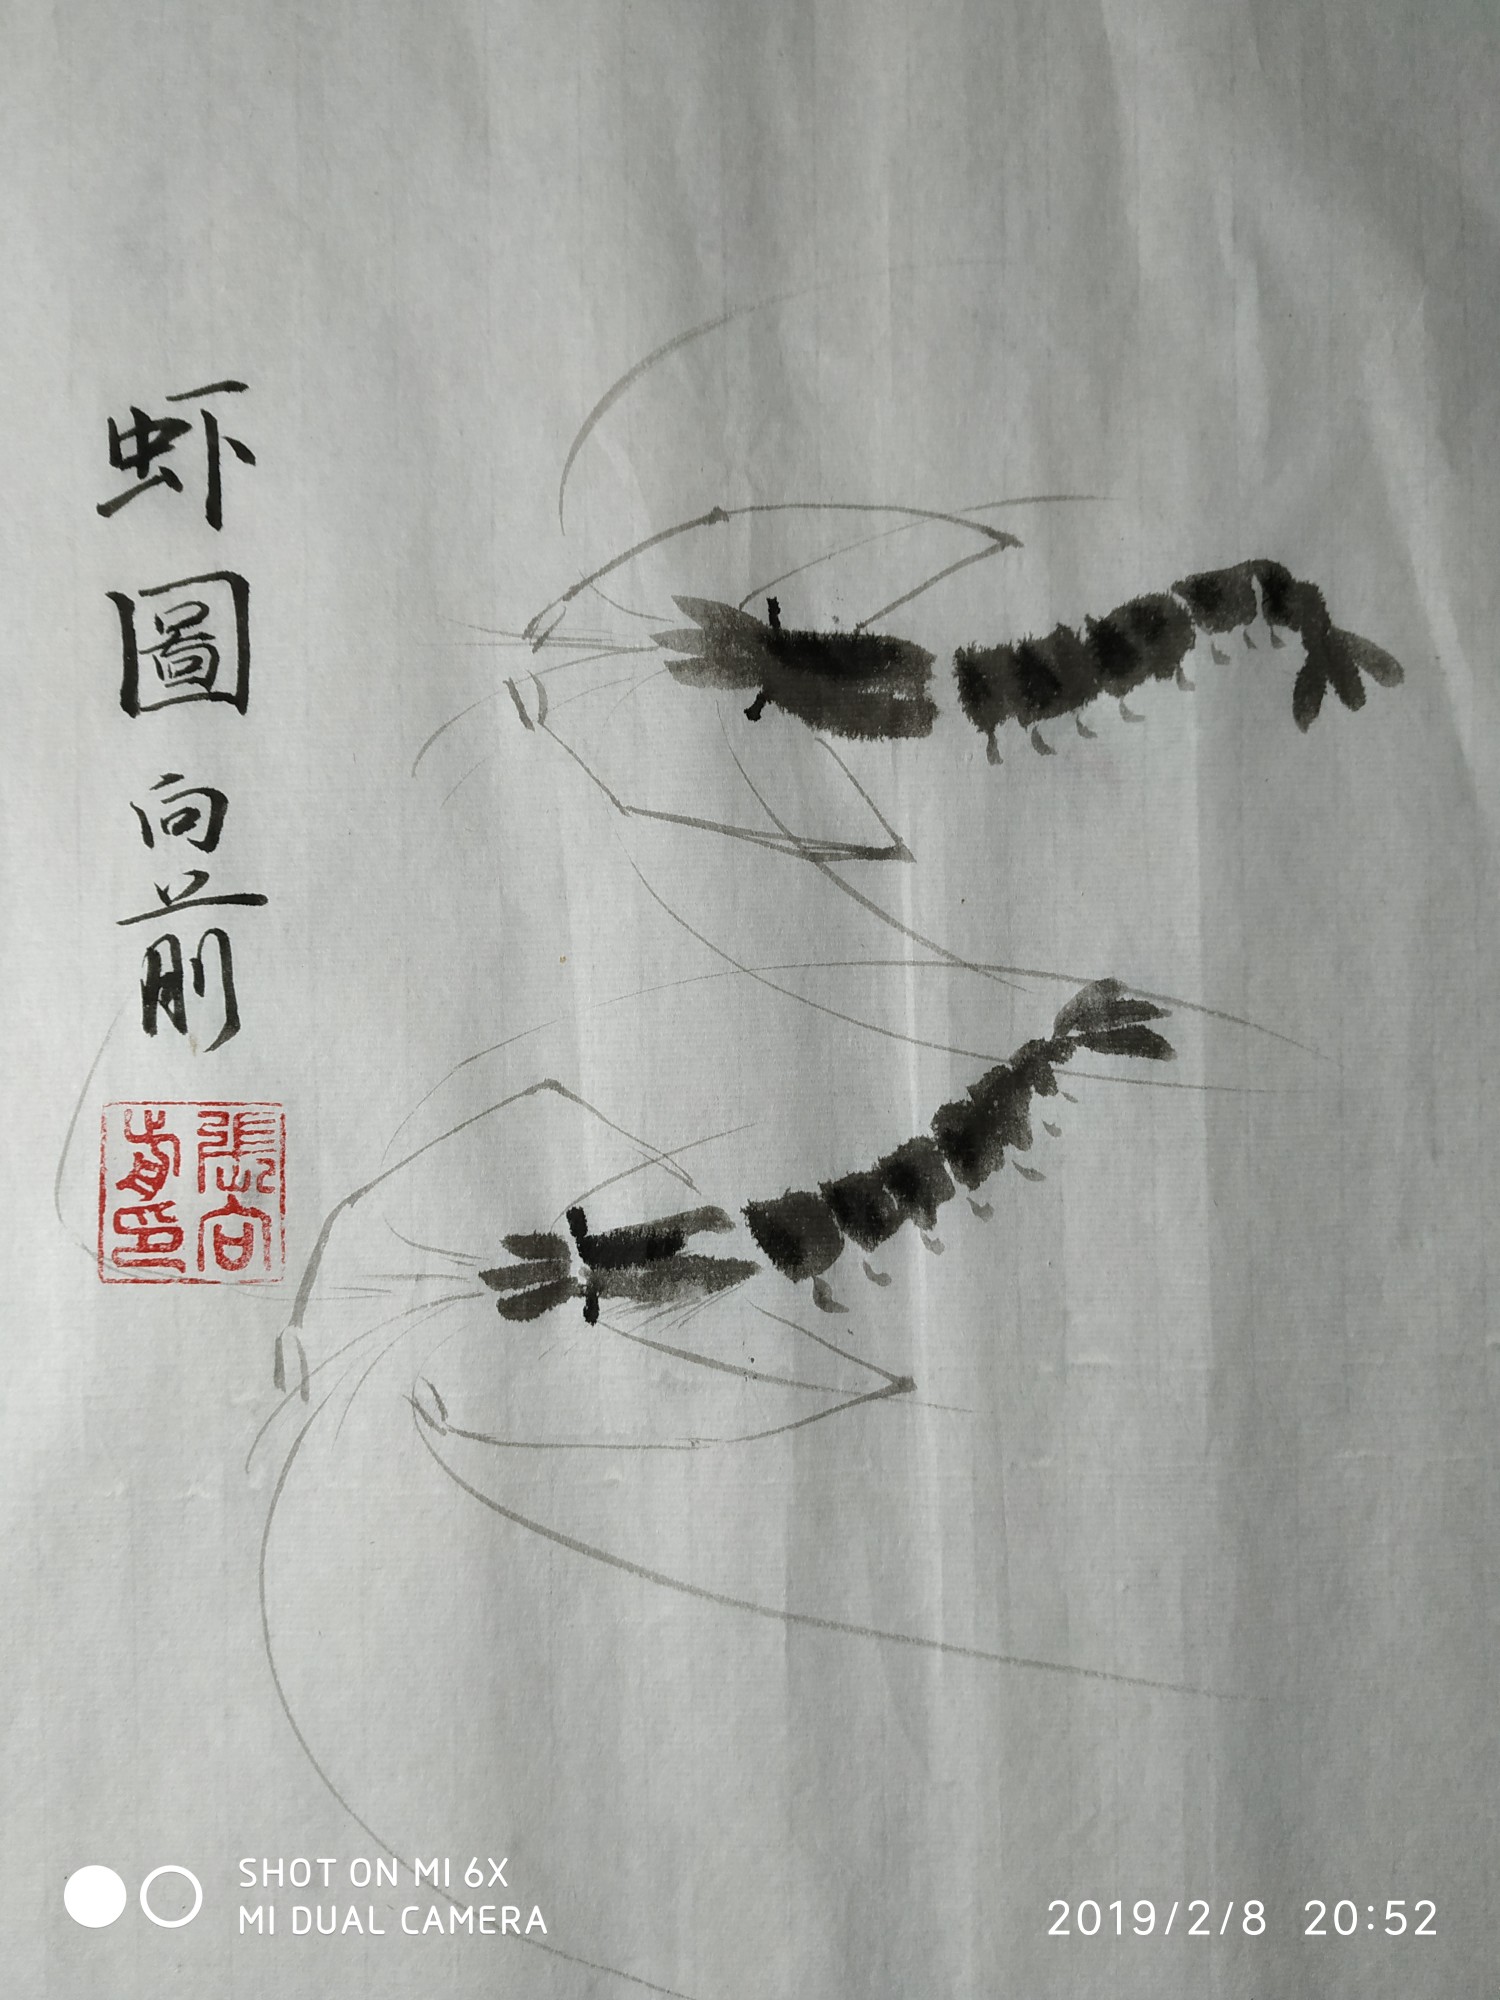 虾圖 向前
張向前印
SHOT ON MI 6X
MI DUAL CAMERA
2019/2/8 20:52